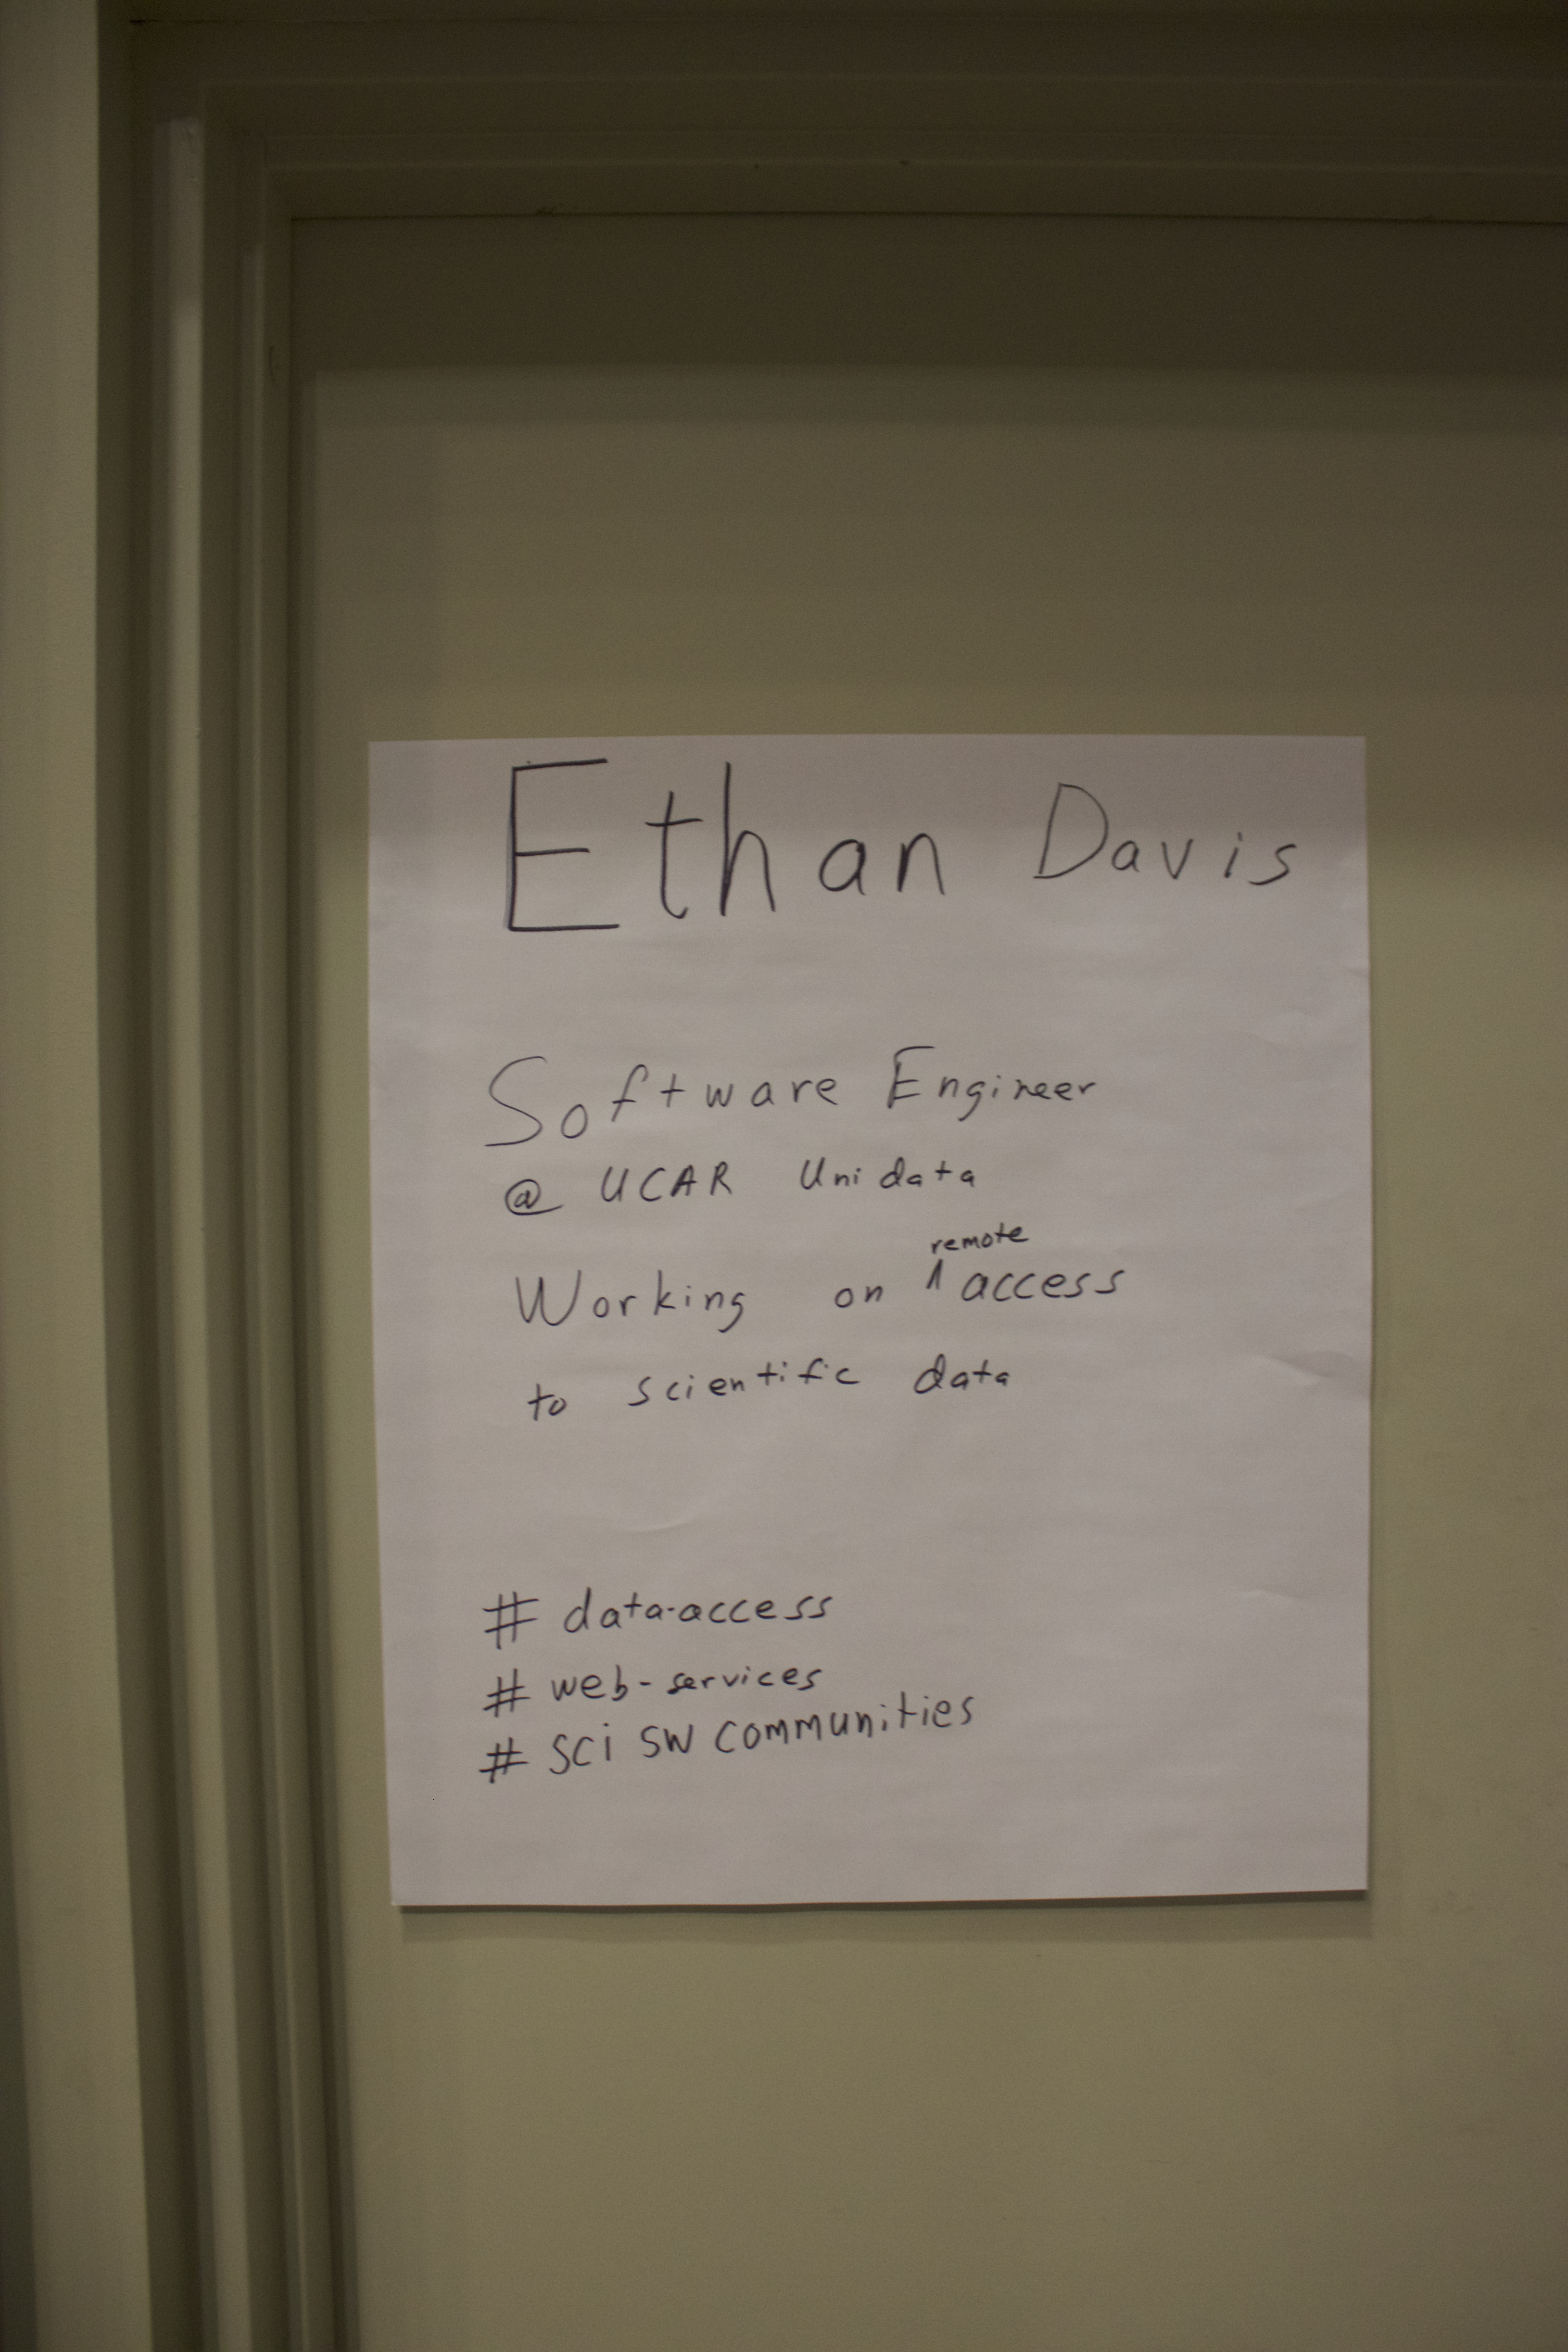 Ethan Davis
Software Engineer
@ UCAR Unidata
remote
Working on ^ access
to scientific data
# data-access
# web-services
# sci sw communities